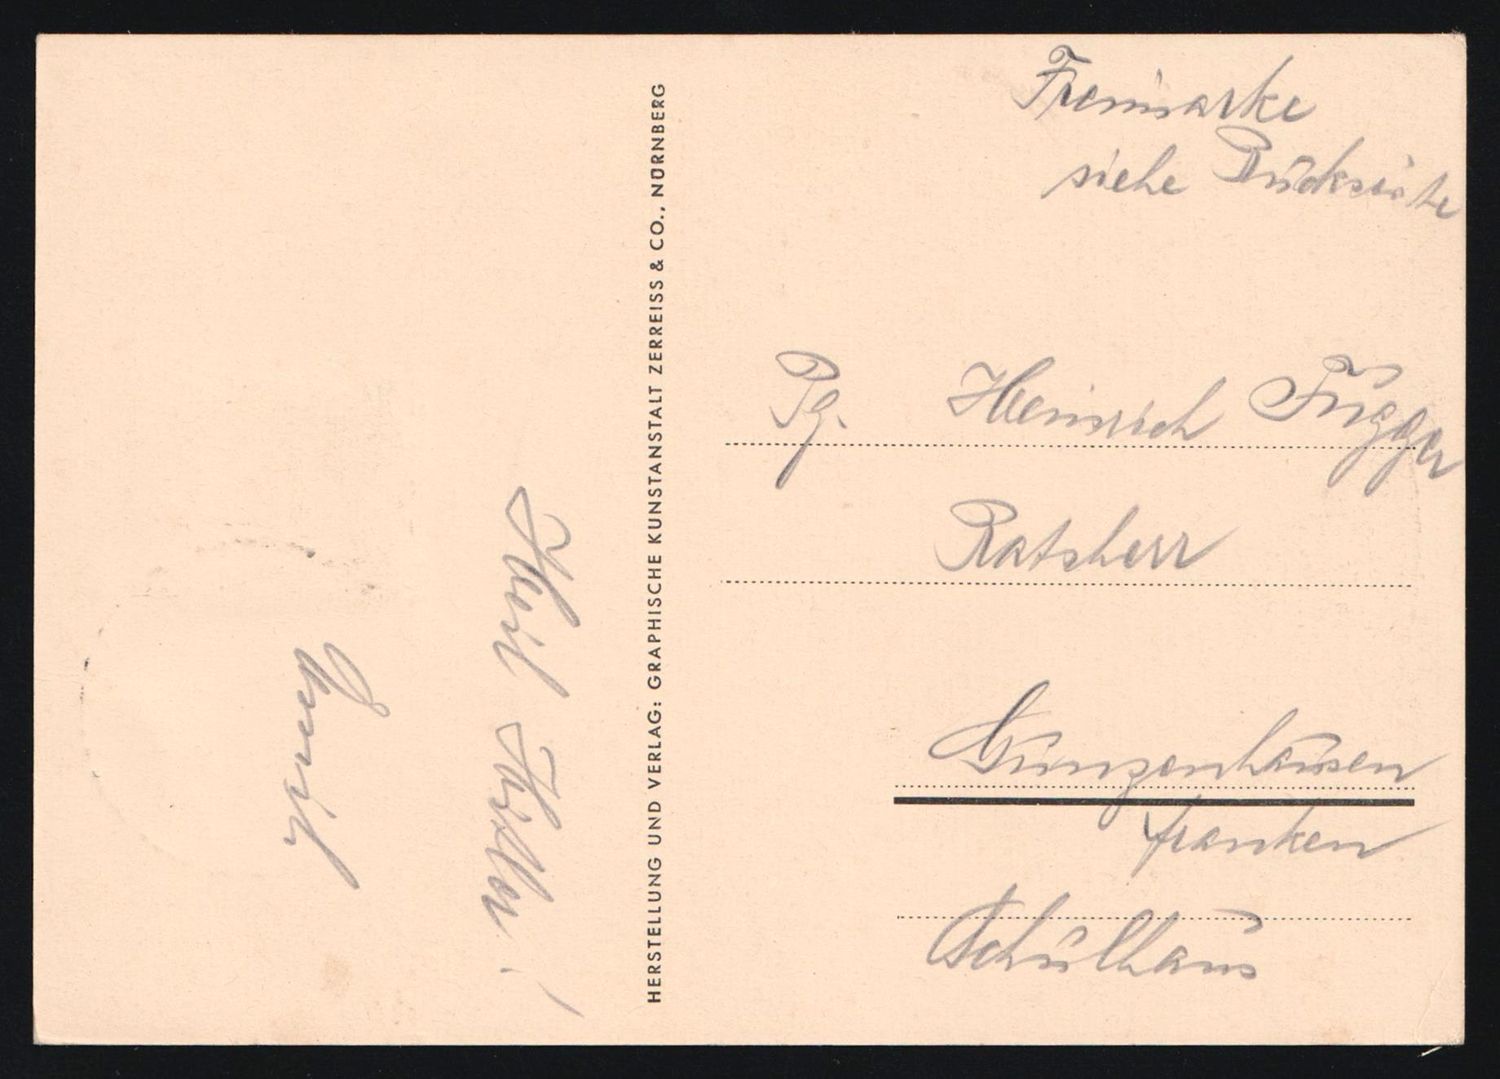 Freimarke
siehe Rückseite
Pg. Heinrich Fugger
Ratsherr
Gunzenhausen
Franken
Schulhaus
HERSTELLUNG UND VERLAG: GRAPHISCHE KUNSTANSTALT ZERREISS & CO., NÜRNBERG
Heil Hitler!